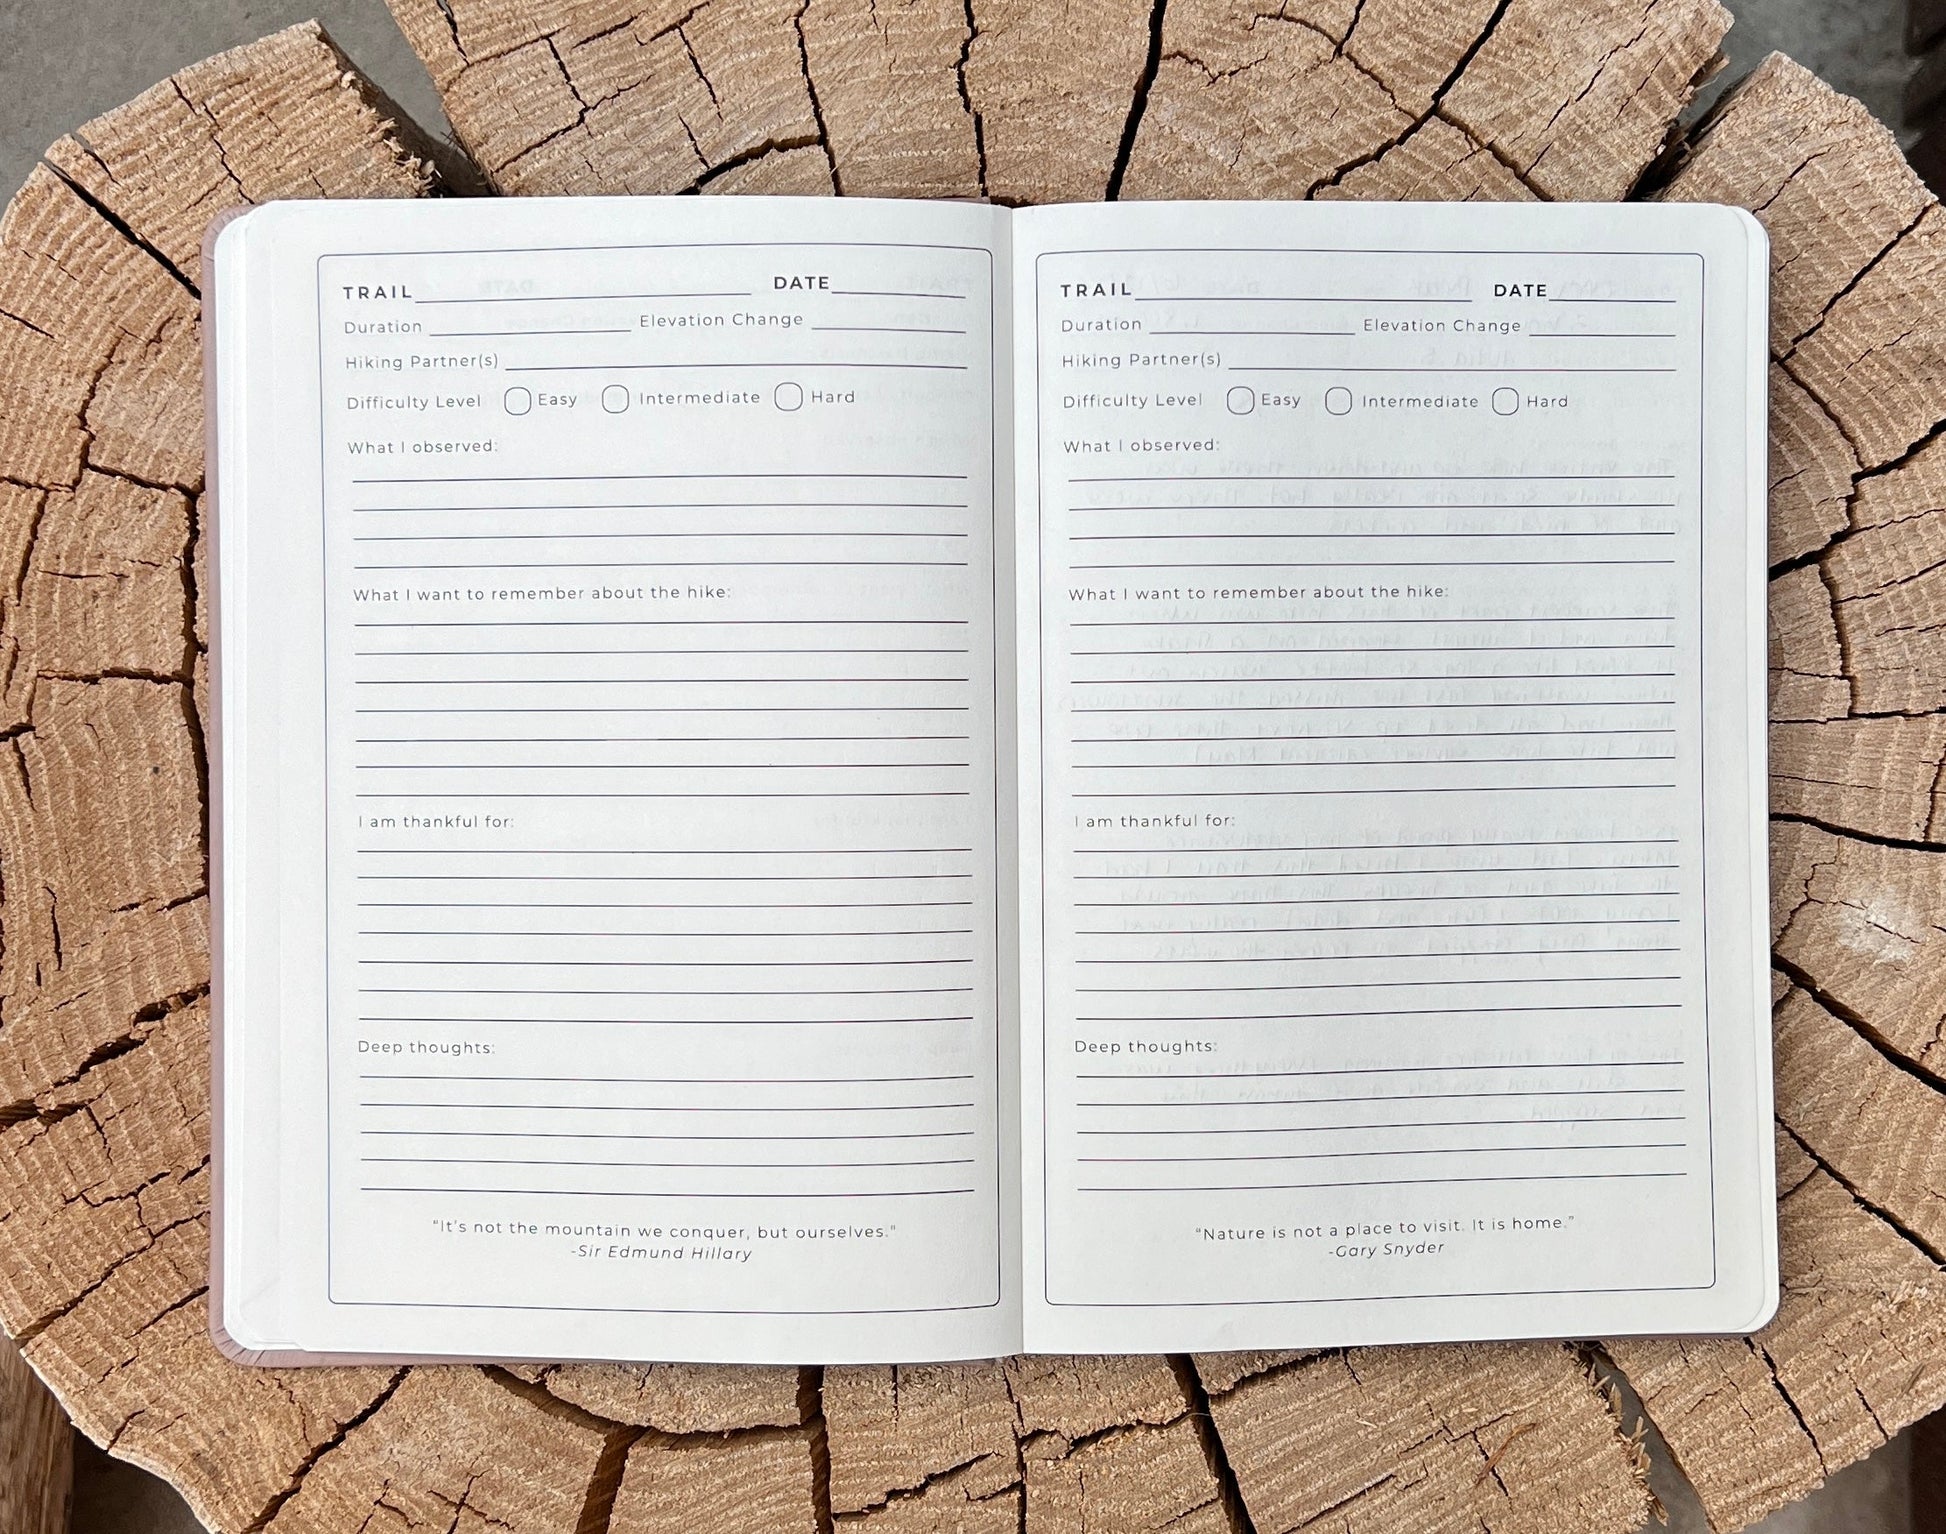 TRAIL DATE
Duration Elevation Change
Hiking Partner(s)
Difficulty Level Easy Intermediate Hard
What I observed:
What I want to remember about the hike:
I am thankful for:
Deep thoughts:
"It's not the mountain we conquer, but ourselves."
-Sir Edmund Hillary
TRAIL DATE
Duration Elevation Change
Hiking Partner(s)
Difficulty Level Easy Intermediate Hard
What I observed:
What I want to remember about the hike:
I am thankful for:
Deep thoughts:
"Nature is not a place to visit. It is home."
-Gary Snyder